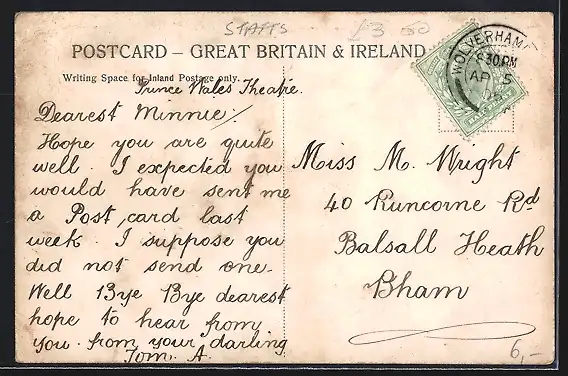 STAFFS
£3.50
POSTCARD – GREAT BRITAIN & IRELAND
Writing Space for Inland Postage only.
Prince Wales Theatre.
Dearest Minnie,
Hope you are quite
well. I expected you
would have sent me
a Post card last
week. I suppose you
did not send one.
Well Bye Bye dearest
hope to hear from
you. from your darling
Tom. A.
WOLVERHAM
8.30PM
AP 5
Miss M. Wright
40 Runcorne Rd
Balsall Heath
Bham
6,-